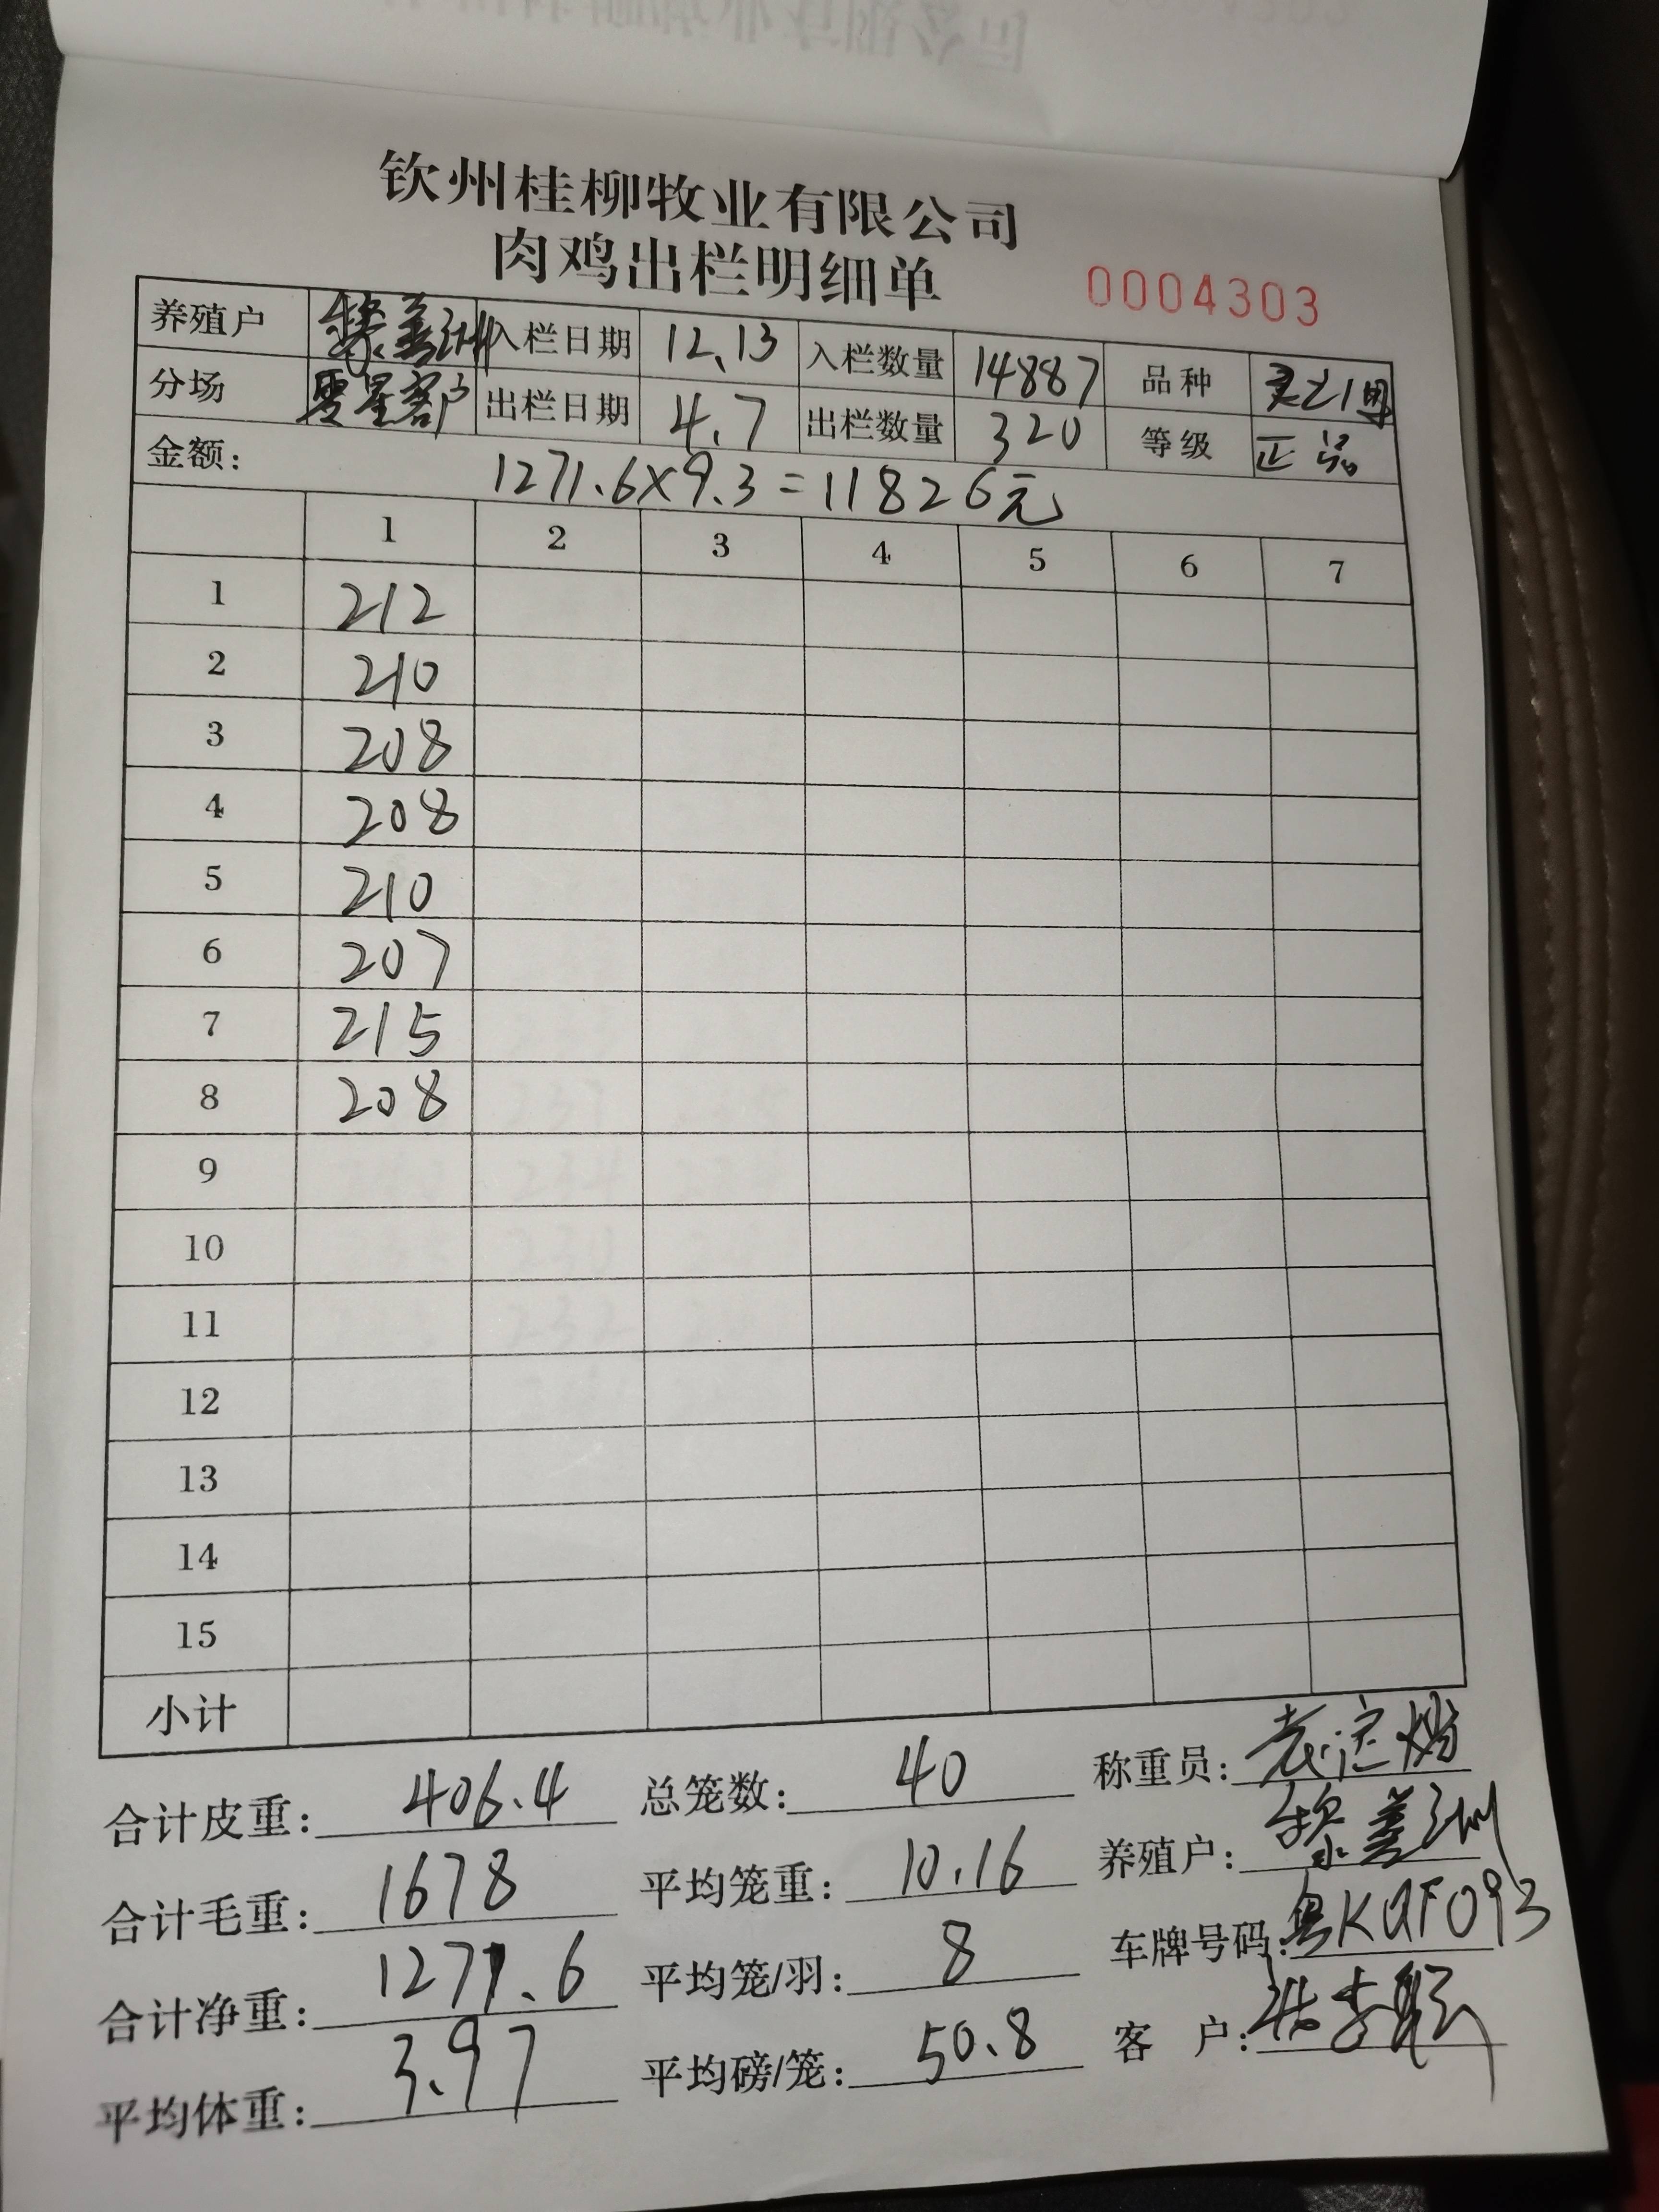 钦州桂柳牧业有限公司
肉鸡出栏明细单 0004303
养殖户 黎善洲 入栏日期 12.13 入栏数量 14887 品种
分场 零星客户 出栏日期 4.7 出栏数量 320 等级 正品
金额: 1271.6×9.3=11826元
1 2 3 4 5 6 7
1 212
2 210
3 208
4 208
5 210
6 207
7 215
8 208
9
10
11
12
13
14
15
小计
合计皮重: 406.4 总笼数: 40 称重员:
合计毛重: 1678 平均笼重: 10.16 养殖户: 黎善洲
合计净重: 1271.6 平均笼/羽: 8 车牌号码: 粤KQF093
平均体重: 3.97 平均磅/笼: 50.8 客 户: